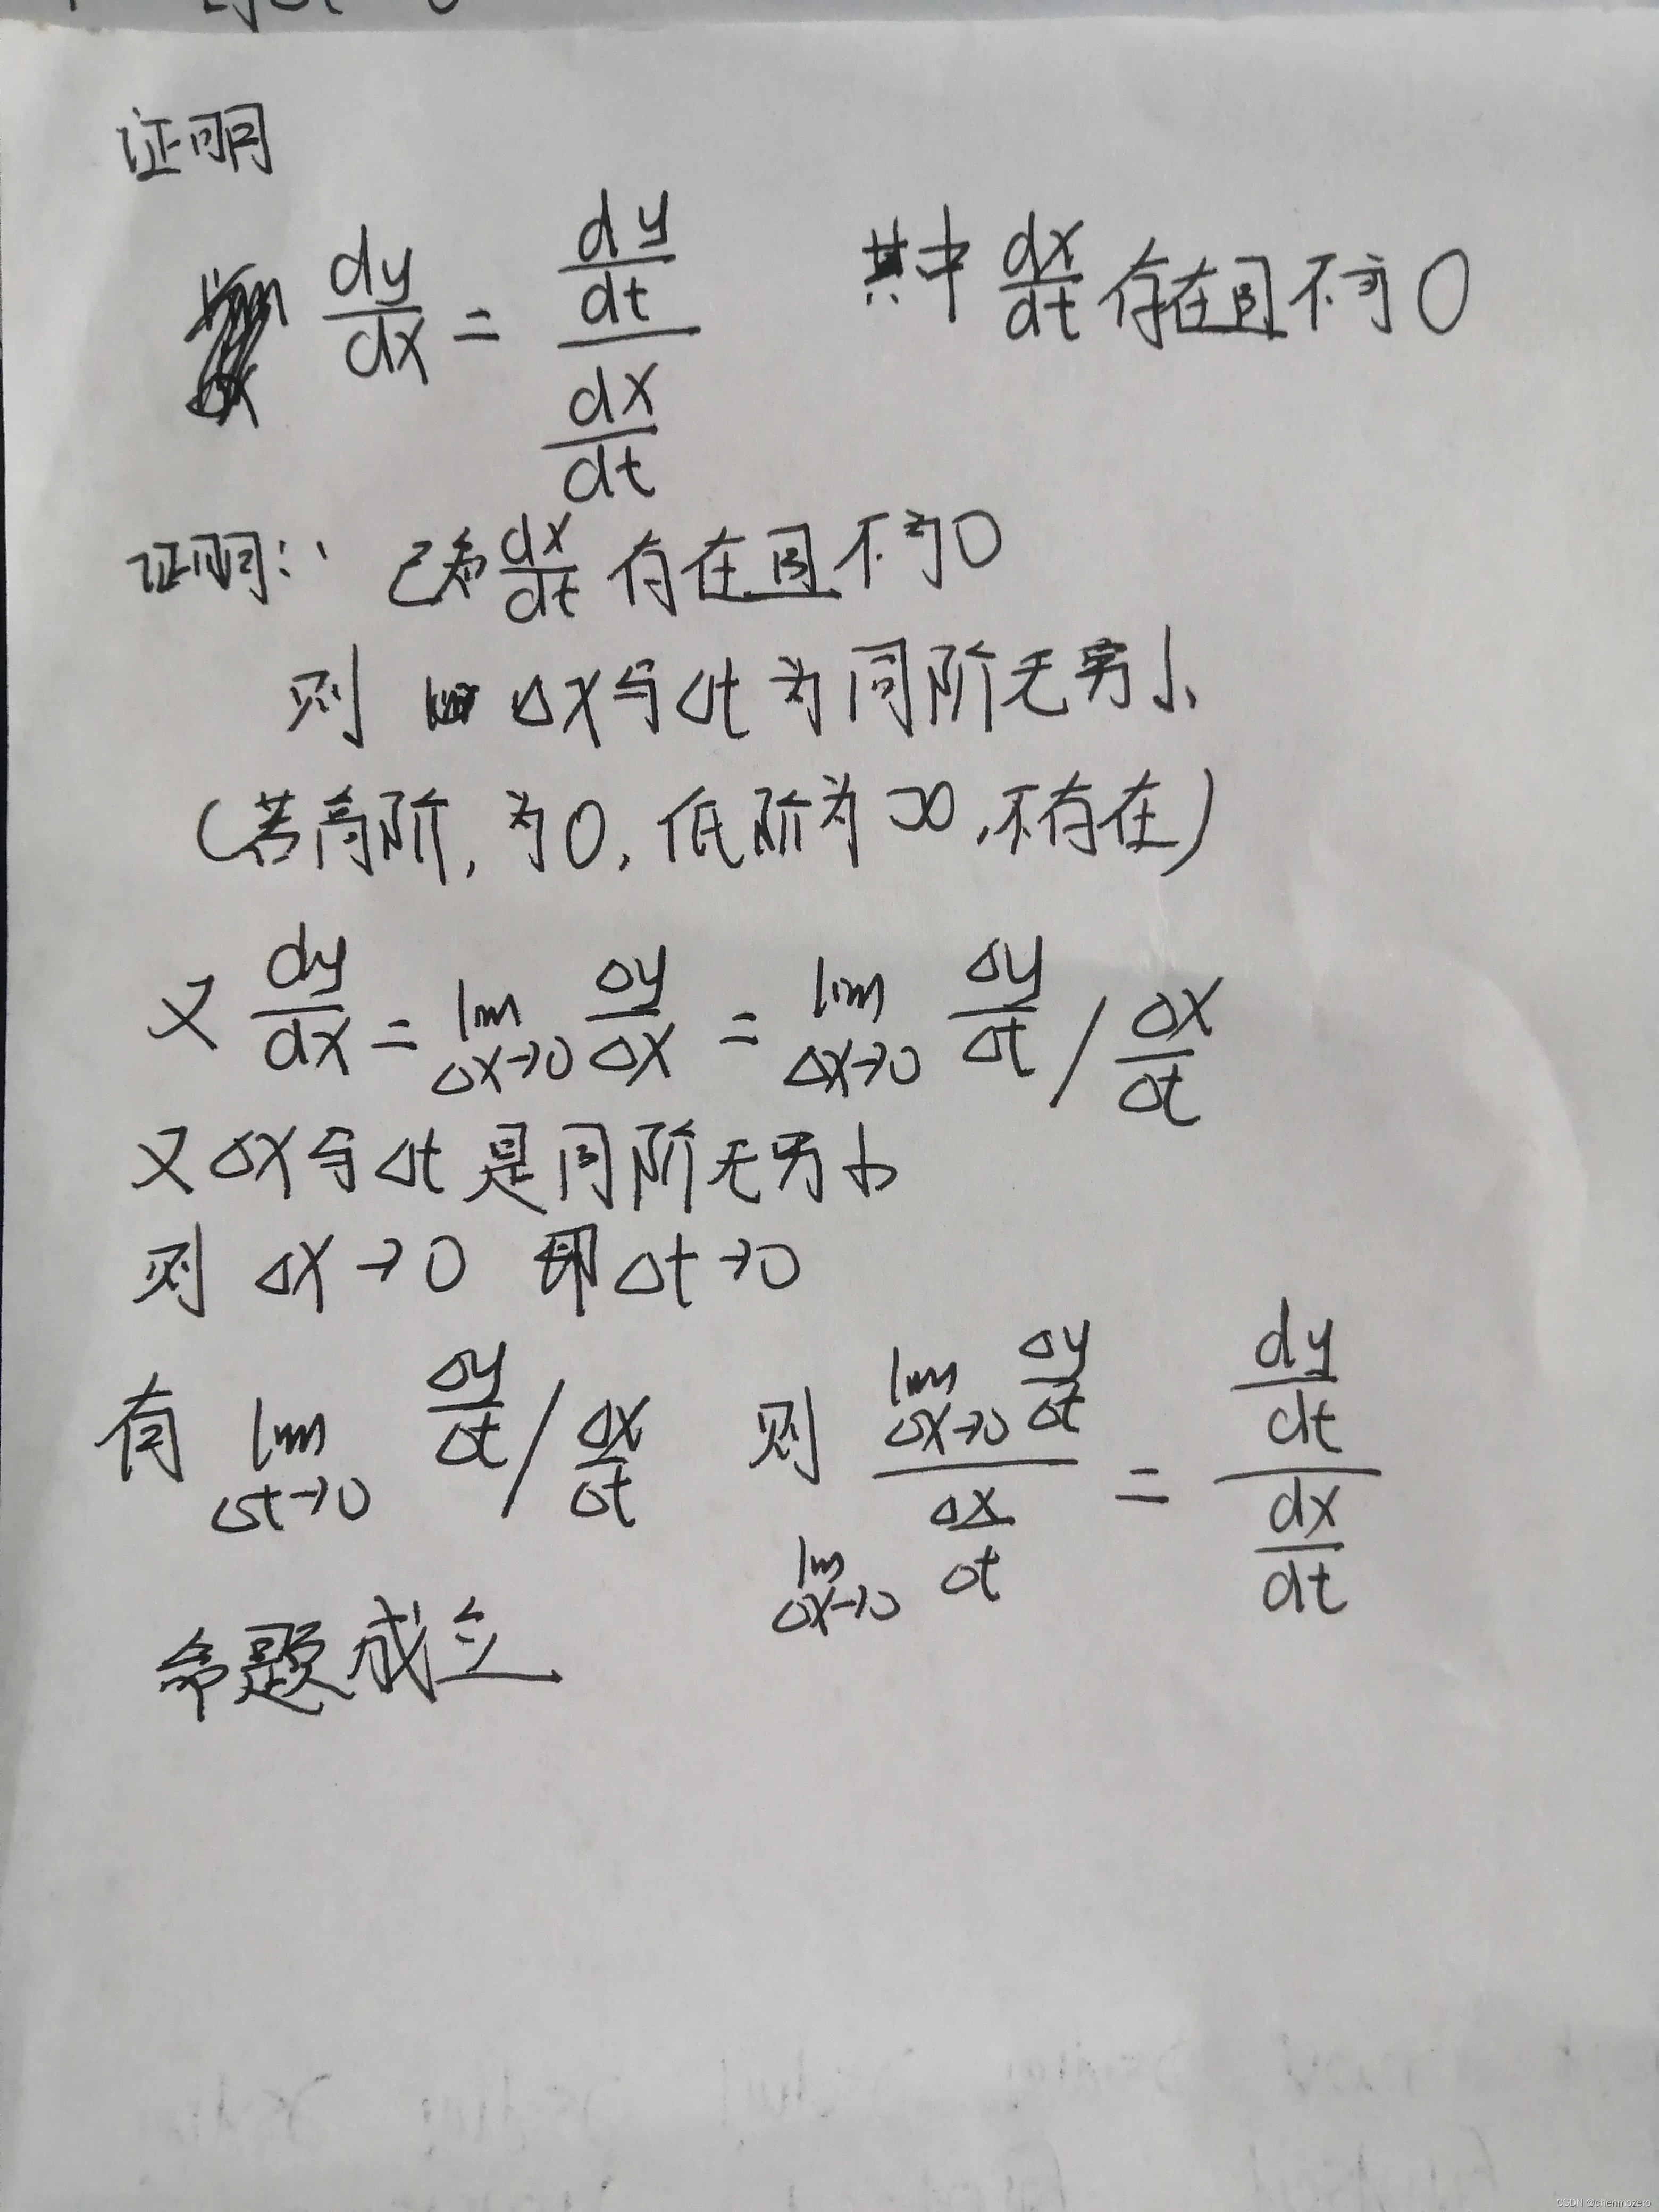 证明
dy/dx = (dy/dt)/(dx/dt) 其中 dx/dt 存在且不为0
证明: 已知 dx/dt 存在且不为0
则 Δx与Δt为同阶无穷小
(若高阶,为0,低阶为∞,不存在)
又 dy/dx = lim Δx→0 Δy/Δx = lim Δx→0 Δy/Δt / Δx/Δt
又Δx与Δt是同阶无穷小
则 Δx→0 即Δt→0
有 lim Δt→0 Δy/Δt / Δx/Δt 则 (lim Δx→0 Δy/Δt)/(lim Δx→0 Δx/Δt) = (dy/dt)/(dx/dt)
命题成立
CSDN @chenmozero